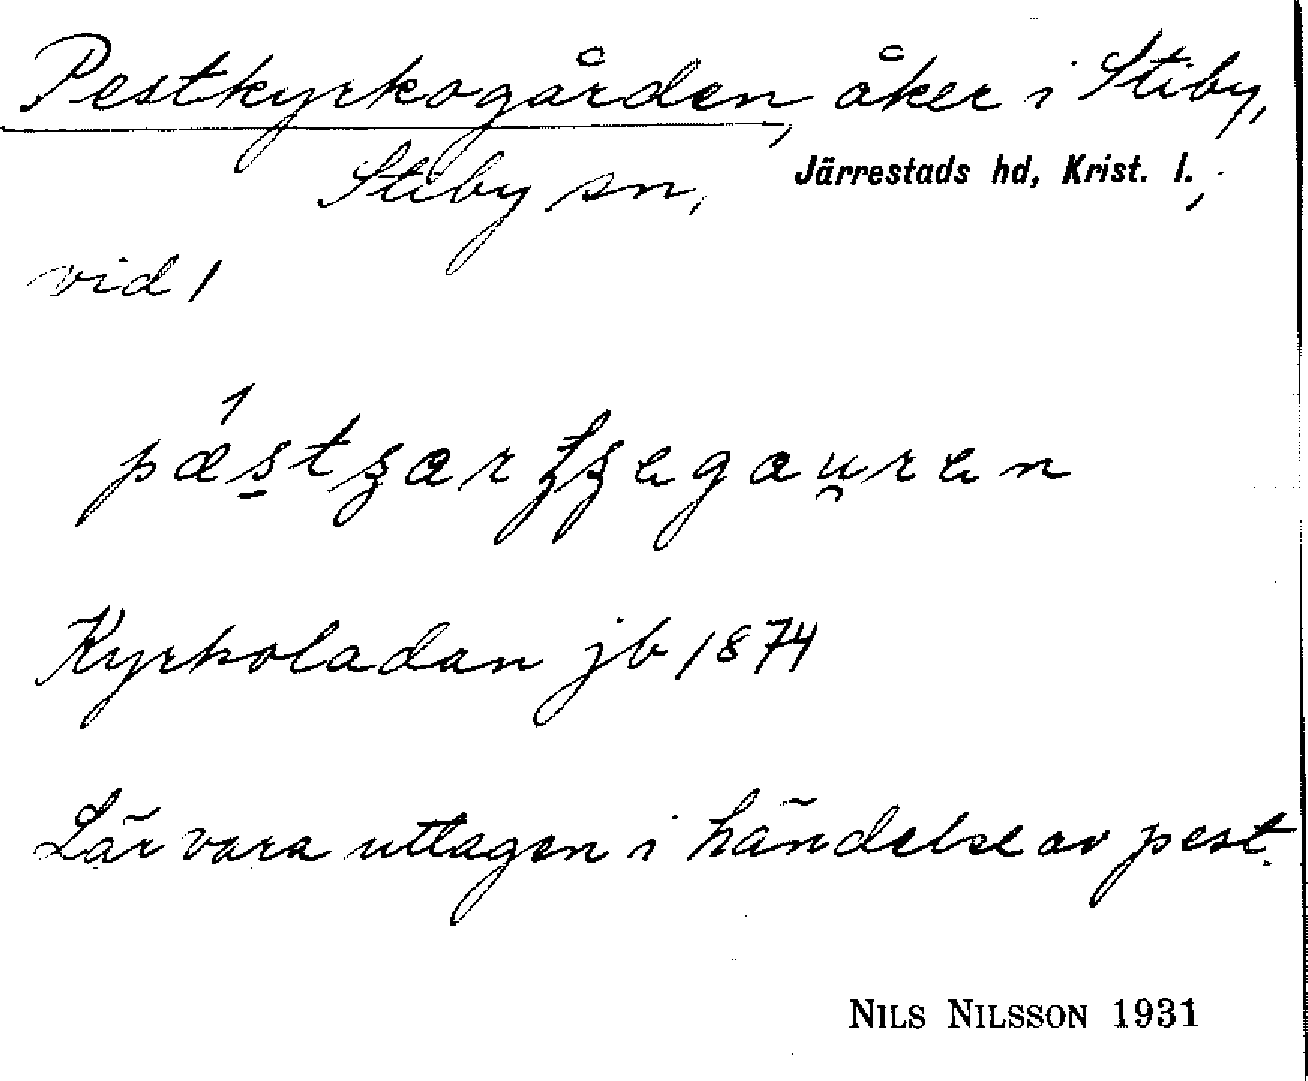 Pestkyrkogården, åker i Stiby,
Stiby sn, Järrestads hd, Krist. l.,
vid 1
Kyrkoladan jb 1874
Lär vara uttagen i händelse av pest.
NILS NILSSON 1931